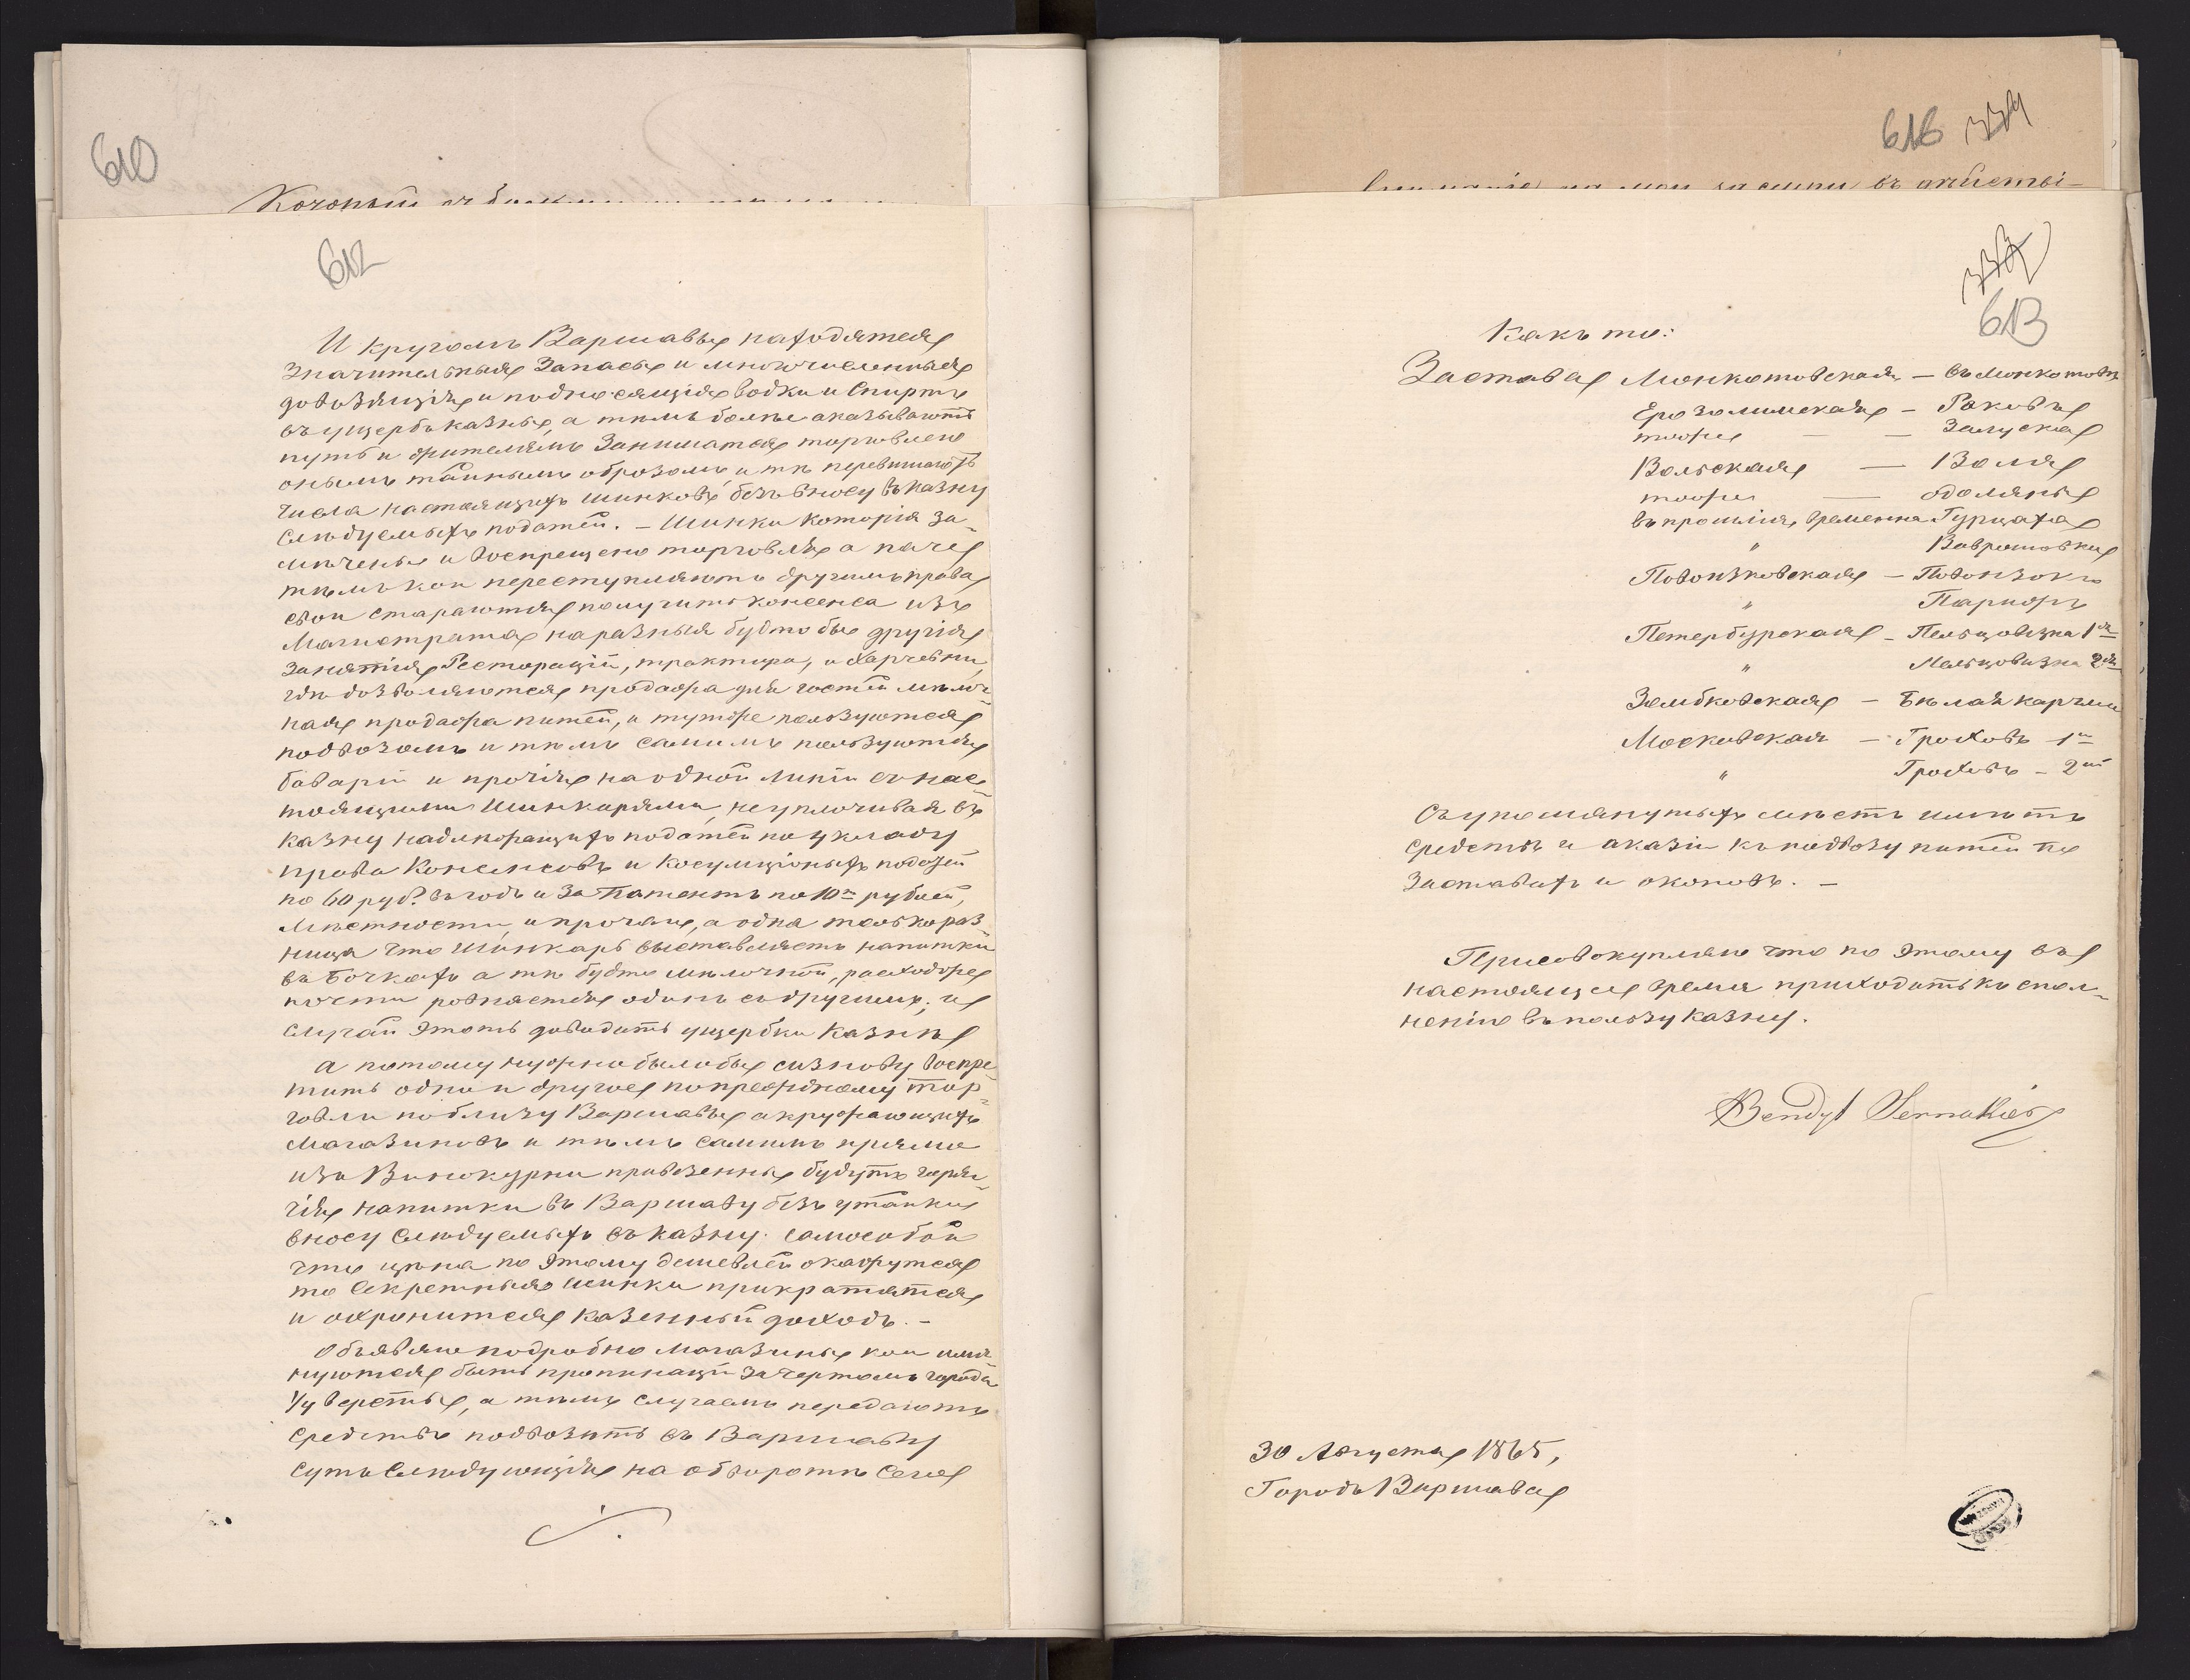 610
612
И кругомъ Варшавы находятся
значительныя Запасы и многочисленныя
довозящія и подносящія водки и Спирты
въ ущербъ казны, а тѣмъ болѣе аказываютъ
путь и жителямъ Заниматся торговлею
онымъ тайнымъ оброзомъ, и тѣ перевишаютъ
числа настоящихъ шинковъ, безъ вносу въ казну
Слѣдуемыхъ податей. – Шинки которія за-
мѣчены и воспрещено торговля а паче
тѣмъ кои переступляютъ другимъ права
свои стараются получить консенса изъ
Магистрата на разныя будто бы другія
занятія, Ресторацій, трактира, и Харчевни,
гдѣ дозволяются продажа для гостей мѣлоч-
ная продажа питей, и тутже пользуются
подвозомъ и тѣмъ самимъ пользуются
баварій и прочія на одной линіи съ нас-
тоящими Шинкарями, неуплочивая въ
казну надлежащихъ податей по укладу
права Консенсовъ и Косумціоныхъ податей
по 60 руб. въ годъ и За Патентъ по 10ть рублей,
Мѣстности, и прочаго, а одна только раз-
ница что Шинкарь выставляетъ напитки
въ Бочкахъ а тѣ будто мѣлочной, расходже
почти ровнается одинъ съ другимъ, и
случай этотъ доводитъ ущербки Казны
А потому нужно былобы сизнову воспре-
тить одни и другое попрежнему тор-
говли поблизу Варшавы акружающихъ
Магазиновъ и тѣмъ самимъ прямо
изъ Винокурни привезенны будутъ горя-
чія напитки въ Варшаву безъ утайки
вносу Слѣдуемыхъ въ казну. Самособой
что цѣна по этому дешевлей окажутся
то Секретныя шинки прикратятся
и охронится Казенный доходъ. –
Объявляю подробно Магазины кои имя-
нуются быть пропинацій За чертомъ города
1/4 версты, а тѣмъ случаемъ передаютъ
средствъ подвозить въ Варшаву
суть Слѣдующія на оборотѣ Сего
616
613
Какъ то:
Застава Монкотовская – въ Монкотовѣ
Ерозолимская – Раковъ
тоже – – Залуска
Вольская – Воля
тоже – одоляны
въ прошлія временна Гурцаха
" Вавришовки
Повонзковская – Повонзокъ
" Парижъ
Петербурская – Пельцовизна 1я
" Пельцовизна 2я
Зомбковская – Бѣлая карчма
Московская – Гроховъ 1й
" Гроховъ – 2й
Съ упомянутыхъ мѣстъ имѣтъ
средствъ и аказіи къ подвозу питей по
Заставахъ и окоповъ. –
Присовокупляю что по этому въ
настоящее время приходитъ ки спол-
неніе въ пользу казны.
Bendyt
30 Августа 1865,
Городъ Варшава